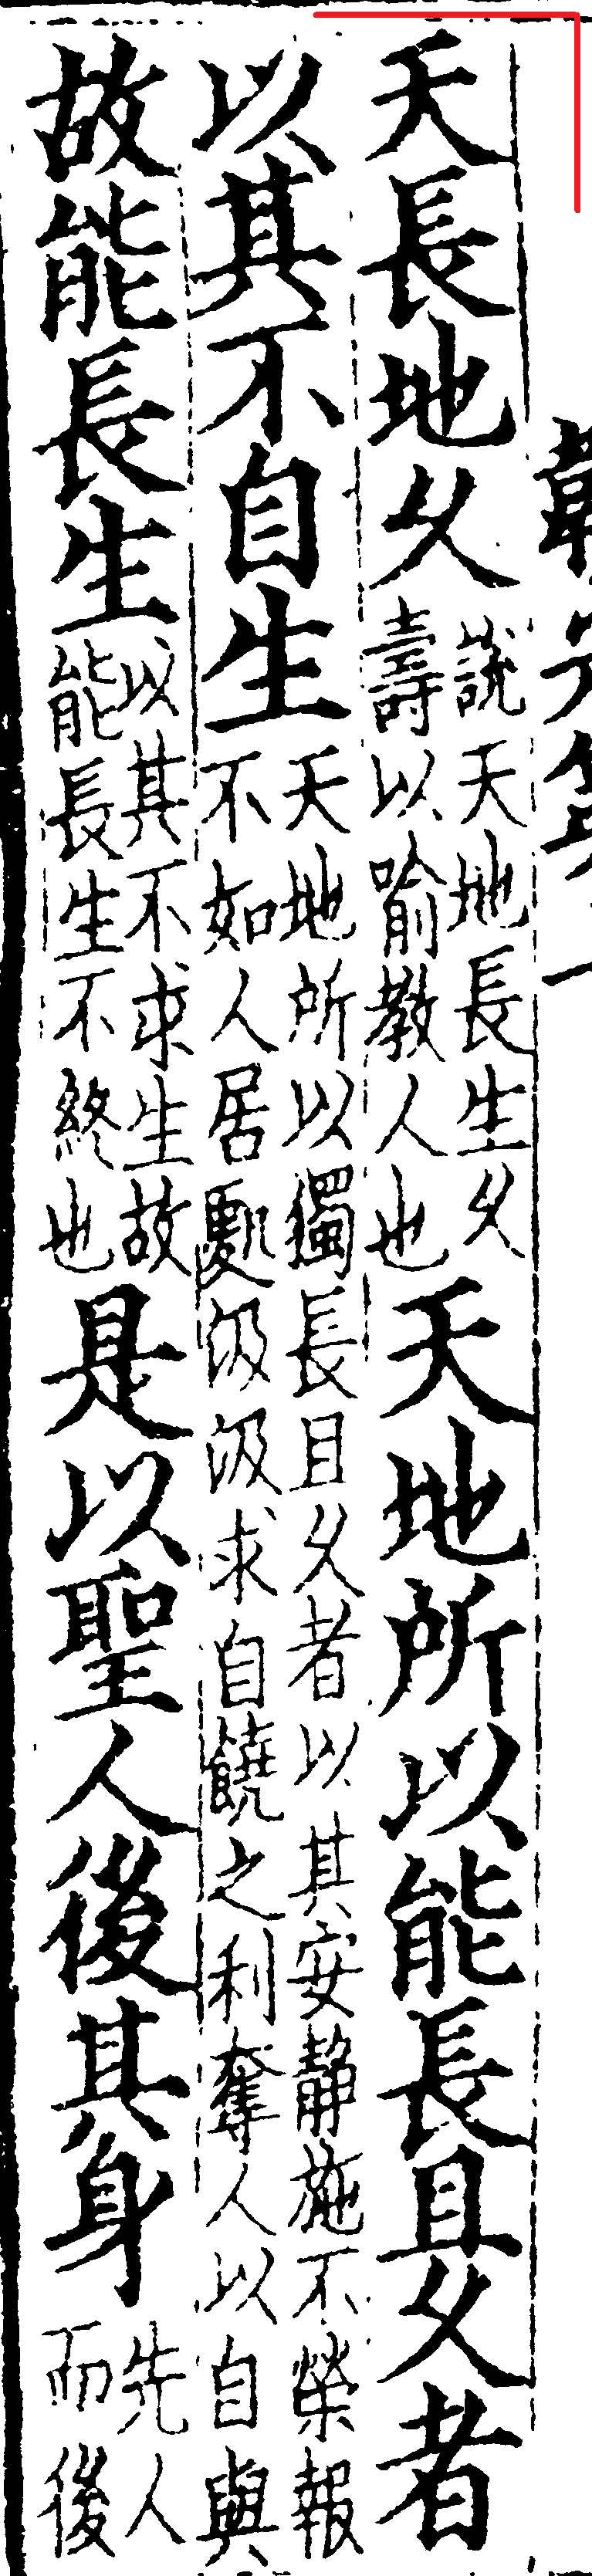 天長地久說天地長生久壽以喻教人也天地所以能長且久者
以其不自生天地所以獨長且久者以其安静施不榮報不如人居處汲汲求自饒之利奪人以自與
故能長生以其不求生故能長生不終也是以聖人後其身先人而後